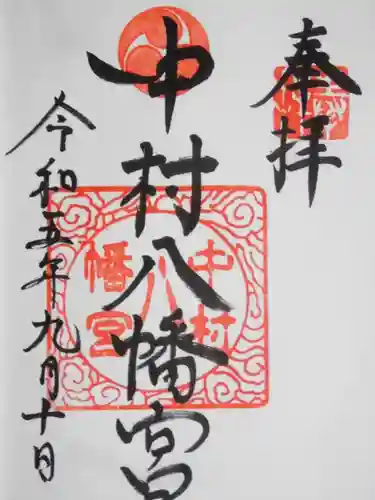 奉拝
中村八幡宮
令和五年九月十日
中村
八
幡宮